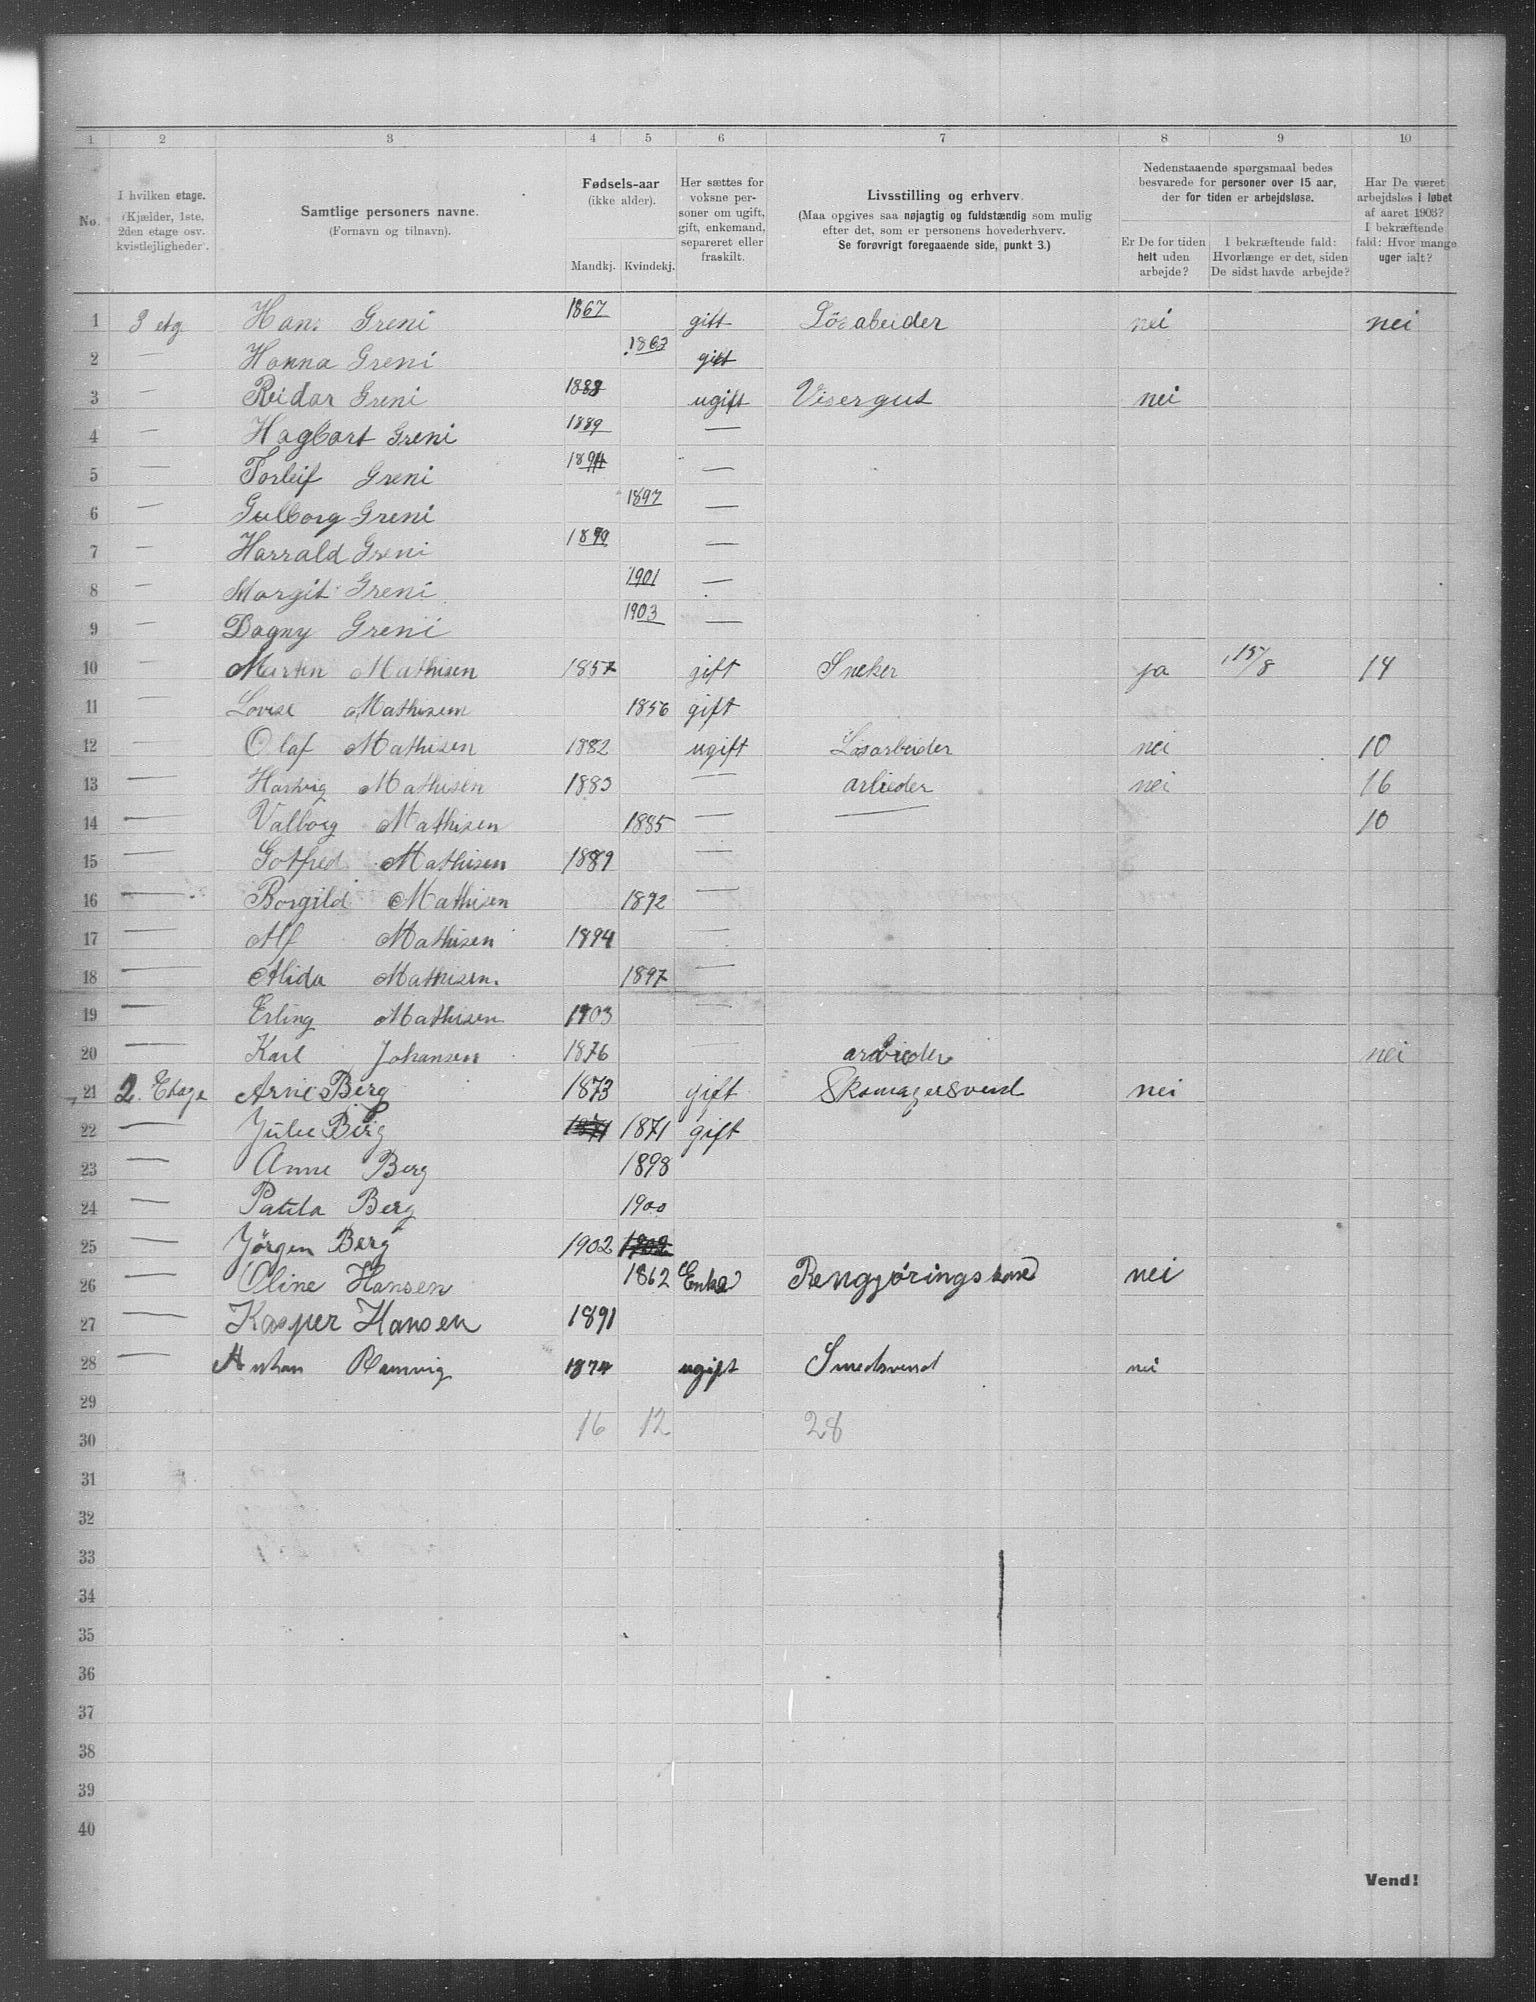 1 2 3 4 5 6 7 8 9 10
No.
I hvilken etage.
(Kjælder, 1ste,
2den etage osv.
kvistlejligheder).
Samtlige personers navne.
(Fornavn og tilnavn).
Fødsels-aar
(ikke alder).
Mandkj. Kvindekj.
Her sættes for
voksne per-
soner om ugift,
gift, enkemand,
separeret eller
fraskilt.
Livsstilling og erhverv.
(Maa opgives saa nøjagtig og fuldstændig som mulig
efter det, som er personens hovederhverv.
Se forøvrigt foregaaende side, punkt 3.)
Nedenstaaende spørgsmaal bedes
besvarede for personer over 15 aar,
der for tiden er arbejdsløse.
Er De for tiden
helt uden
arbejde?
I bekræftende fald:
Hvorlænge er det, siden
De sidst havde arbejde?
Har De været
arbejdsløs i løbet
af aaret 1903?
I bekræftende
fald: Hvor mange
uger ialt?
1 3 etg Hans Greni 1867 gift Lösabeider nei nei
2 — Hanna Greni 1867 gift
3 — Reidar Greni 1888 ugift Visergut nei
4 — Hagbart Greni 1889 —
5 — Torleif Greni 1894 —
6 — Gulborg Greni 1897 —
7 — Harrald Greni 1899 —
8 — Margit Greni 1901 —
9 — Dagny Greni 1903 —
10 Martin Mathisen 1857 gift Sneker ja 15/8 14
11 Lovise Mathisen 1856 gift
12 — Olaf Mathisen 1882 ugift Løsarbeider nei 10
13 — Hartvig Mathisen 1883 — arbieder nei 16
14 — Valborg Mathisen 1885 — — 10
15 — Gotfred Mathisen 1889 —
16 — Borgild Mathisen 1892 —
17 — Alf Mathisen 1894 —
18 — Alida Mathisen. 1897 —
19 — Erling Mathisen 1903 —
20 — Karl Johansen 1876 — arbieder nei
21 2. Etage Arne Berg 1873 gift Skomagersvend nei
22 — Julie Berg 1871 1871 gift
23 — Anne Berg 1898
24 — Paula Berg 1900
25 — Jörgen Berg 1902 1902
26 — Oline Hansen 1862 Enke Rengjøringskone nei
27 — Kasper Hansen 1891
28 — Anthon Ramvig 1874 ugift Smedsvend nei
29
16 12 28
30
31
32
33
34
35
36
37
38
39
40
Vend!